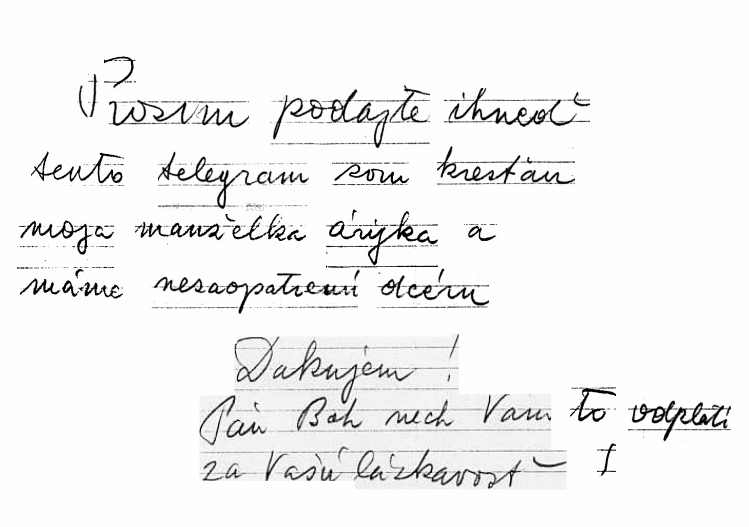 Prosim podajte ihneď
tento telegram som krestan
moja manželka árijka a
máme nezaopatrenú dcéru
Dakujem!
Pán Boh nech Vam to odplati
za Vašú láskavosť !